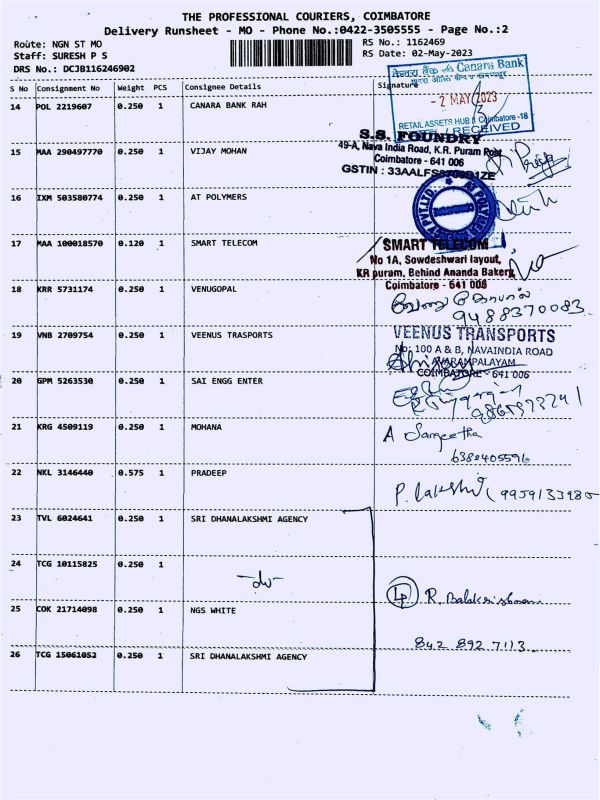 THE PROFESSIONAL COURIERS, COIMBATORE
Delivery Runsheet - MO - Phone No.:0422-3505555 - Page No.:2
Route: NGN ST MO
RS No.: 1162469
Staff: SURESH P S
RS Date: 02-May-2023
DRS No.: DCJB116246902
S No Consignment No Weight PCS Consignee Details Signature
केनरा बैंक Canara Bank
- 2 MAY 2023
RETAIL ASSETS HUB II Coimbatore -18
RECEIVED
14 POL 2219607 0.250 1 CANARA BANK RAH
S.S. FOUNDRY
49-A, Nava India Road, K.R. Puram Post
Coimbatore - 641 006
GSTIN : 33AALFS
15 MAA 290497770 0.250 1 VIJAY MOHAN
16 IXM 503580774 0.250 1 AT POLYMERS
PVT.LTD.
17 MAA 100018570 0.120 1 SMART TELECOM
SMART TELECOM
No 1A, Sowdeshwari layout,
KR puram, Behind Ananda Bakery
Coimbatore - 641 006
18 KRR 5731174 0.250 1 VENUGOPAL
9488370083
19 VNB 2709754 0.250 1 VEENUS TRASPORTS
VEENUS TRANSPORTS
No: 100 A & B, NAVAINDIA ROAD
AVARAMPALAYAM
COIMBATORE - 641 006
20 GPM 5263530 0.250 1 SAI ENGG ENTER
21 KRG 4509119 0.250 1 MOHANA
A Sangeetha
6382405596
22 NKL 3146440 0.575 1 PRADEEP
P. Lakshmi
23 TVL 6024641 0.250 1 SRI DHANALAKSHMI AGENCY
24 TCG 10115825 0.250 1
-do-
25 COK 21714098 0.250 1 NGS WHITE
LP R. Balakrishnan
842 892 7113
26 TCG 15061052 0.250 1 SRI DHANALAKSHMI AGENCY